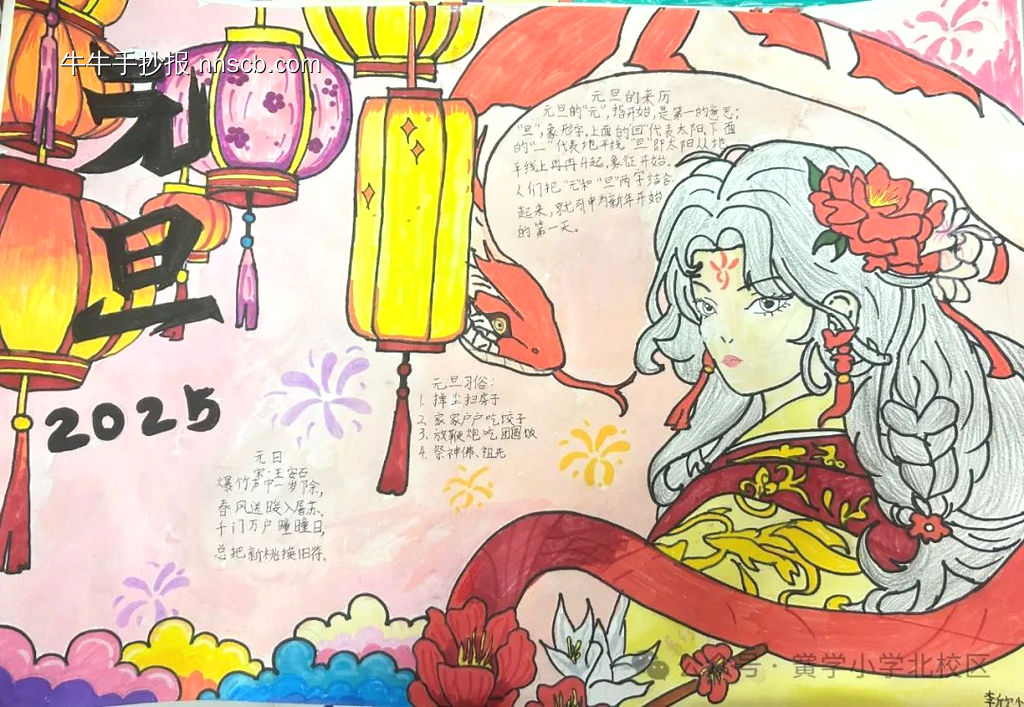 牛牛手抄报 nhscb.com
元
旦
2025
元旦的来历
元旦的"元",指开始,是第一的意思;
"旦",象形字,上面的"日"代表太阳,下面
的"一"代表地平线,"旦"即太阳从地
平线上冉冉升起,象征开始。
人们把"元"和"旦"两字结合
起来,就引申为新年开始
的第一天。
元旦习俗:
1. 掸尘扫房子
2. 家家户户吃饺子
3. 放鞭炮吃团圆饭
4. 祭神佛、祖先
元日
宋·王安石
爆竹声中一岁除,
春风送暖入屠苏。
千门万户瞳瞳日,
总把新桃换旧符。
公众号·黄学小学北校区
李欣